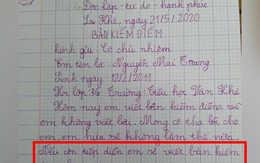 Độc lập - tự do - hạnh phúc
La Khê, ngày 21/5/2020
BẢN KIỂM ĐIỂM
kính gửi: Cô chủ nhiệm
Em tên là: Nguyễn Mai Trang
Sinh ngày: 12/2/2011
Học lớp 3 Trường: Tiểu học Văn Khê
Hôm nay em viết bản kiểm điểm vì
em không viết bài. Mong cô tha lỗi cho
em, em hứa sẽ không làm thế nữa.
Nếu còn tiếp diễn em sẽ viết bản kiểm